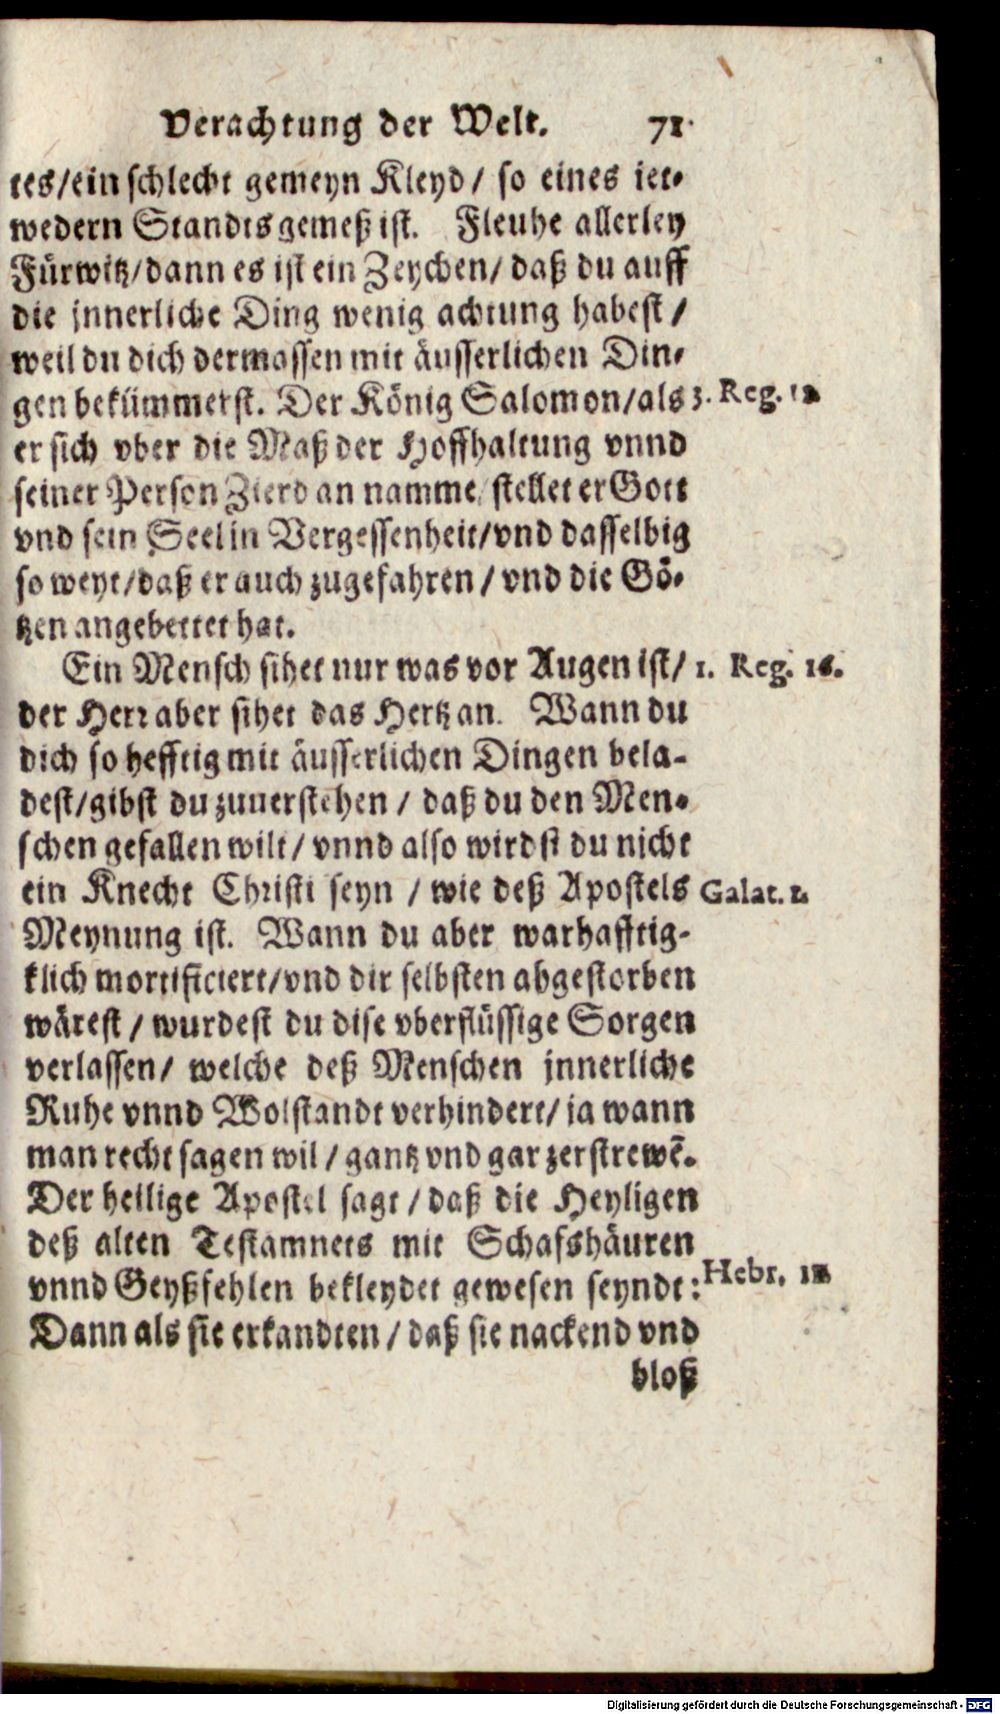 Verachtung der Welt. 71
tes/ein schlecht gemeyn Kleyd/ so eines iet-
wedern Standts gemeß ist. Fleuhe allerley
Fürwitz/dann es ist ein Zeychen/ daß du auff
die jnnerliche Ding wenig achtung habest/
weil du dich dermassen mit äusserlichen Din-
gen bekümmerst. Der König Salomon/als 3. Reg.
er sich vber die Maß der Hoffhaltung vnnd
seiner Person Zierd an namme/ stellet er Gott
vnd sein Seel in Vergessenheit/vnd dasselbig
so weyt/daß er auch zugefahren/ vnd die Gö-
tzen angebettet hat.
Ein Mensch sihet nur was vor Augen ist/ 1. Reg. 16.
der Herr aber sihet das Hertz an. Wann du
dich so hefftig mit äusserlichen Dingen bela-
dest/gibst du zuuerstehen/ daß du den Men-
schen gefallen wilt/ vnnd also wirdst du nicht
ein Knecht Christi seyn/ wie deß Apostels Galat. 1.
Meynung ist. Wann du aber warhafftig-
klich mortificiert/vnd dir selbsten abgestorben
wärest/ wurdest du dise vberflüssige Sorgen
verlassen/ welche deß Menschen jnnerliche
Ruhe vnnd Wolstandt verhindert/ ja wann
man recht sagen wil/ gantz vnd gar zerstrewē.
Der heilige Apostel sagt/ daß die Heyligen
deß alten Testamnets mit Schafshäuten
vnnd Geyßfehlen bekleydet gewesen seyndt: Hebr.
Dann als sie erkandten/ daß sie nackend vnd
bloß
Digitalisierung gefördert durch die Deutsche Forschungsgemeinschaft - DFG